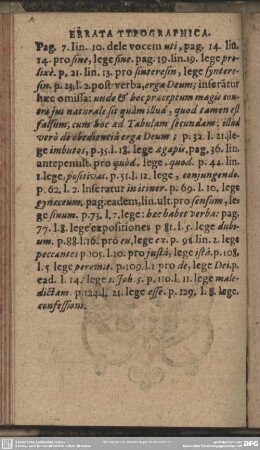 ERRATA TYPOGRAPHICA.
Pag. 7. lin. 10. dele vocem uti, pag. 14. lin.
14. pro sine, lege sive. pag. 19. lin. 19. lege pro-
lixè. p. 21. lin. 13. pro sinteresin, lege syntere-
sin. p. 23. l. 2. post verba, erga Deum; inseratur
hæc omissa: unde & hoc præceptum magis con-
tra jus naturale sit quàm illud, quod tamen est
falsum, cum hoc ad Tabulam secundam: illud
verò de obedientiâ erga Deum; p. 32. l. 21. le-
ge imbutos, p. 35. l. 18. lege agapis, pag. 36. lin.
antepenult. pro quòd, lege, quod. p. 44. lin.
1. lege, positivas. p. 51. l. 12. lege, conjungendo.
p. 62. l. 2. Inseratur in itiner. p. 69. l. 10. lege
gyneceum, pag. eadem, lin. ult. pro sensum, le-
ge sinum. p. 73. l. 7. lege: hæc habet verba: pag.
77. l. 8. lege expositiones p. 81. l. 5. lege dubi-
um. p. 88. l. 16. pro eu, lege ex. p. 98. lin. 2. lege
peccantes p. 105. l. 10. pro justâ, lege istâ. p. 108.
l. 5 lege peremit. p. 109. l. 1 pro de, lege Dei. p.
ead. l. 14. lege 1. Joh. 5. p. 110. l. 11. lege male-
dictam. p. 124. l. 21. lege esse. p. 129. l. 8. lege.
confessioni.
DFG